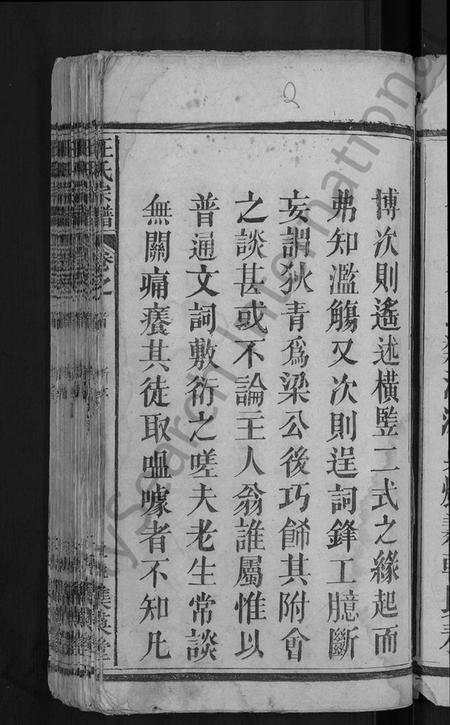 博次則遙述橫豎二式之緣起而
弗知濫觴又次則逞詞鋒工臆斷
妄謂狄青爲梁公後巧飾其附會
之談甚或不論主人翁誰屬惟以
普通文詞敷衍之嗟夫老生常談
無關痛癢其徒取嗢噱者不知凡
汪氏宗譜
卷之
集義堂
2
FamilySearch International